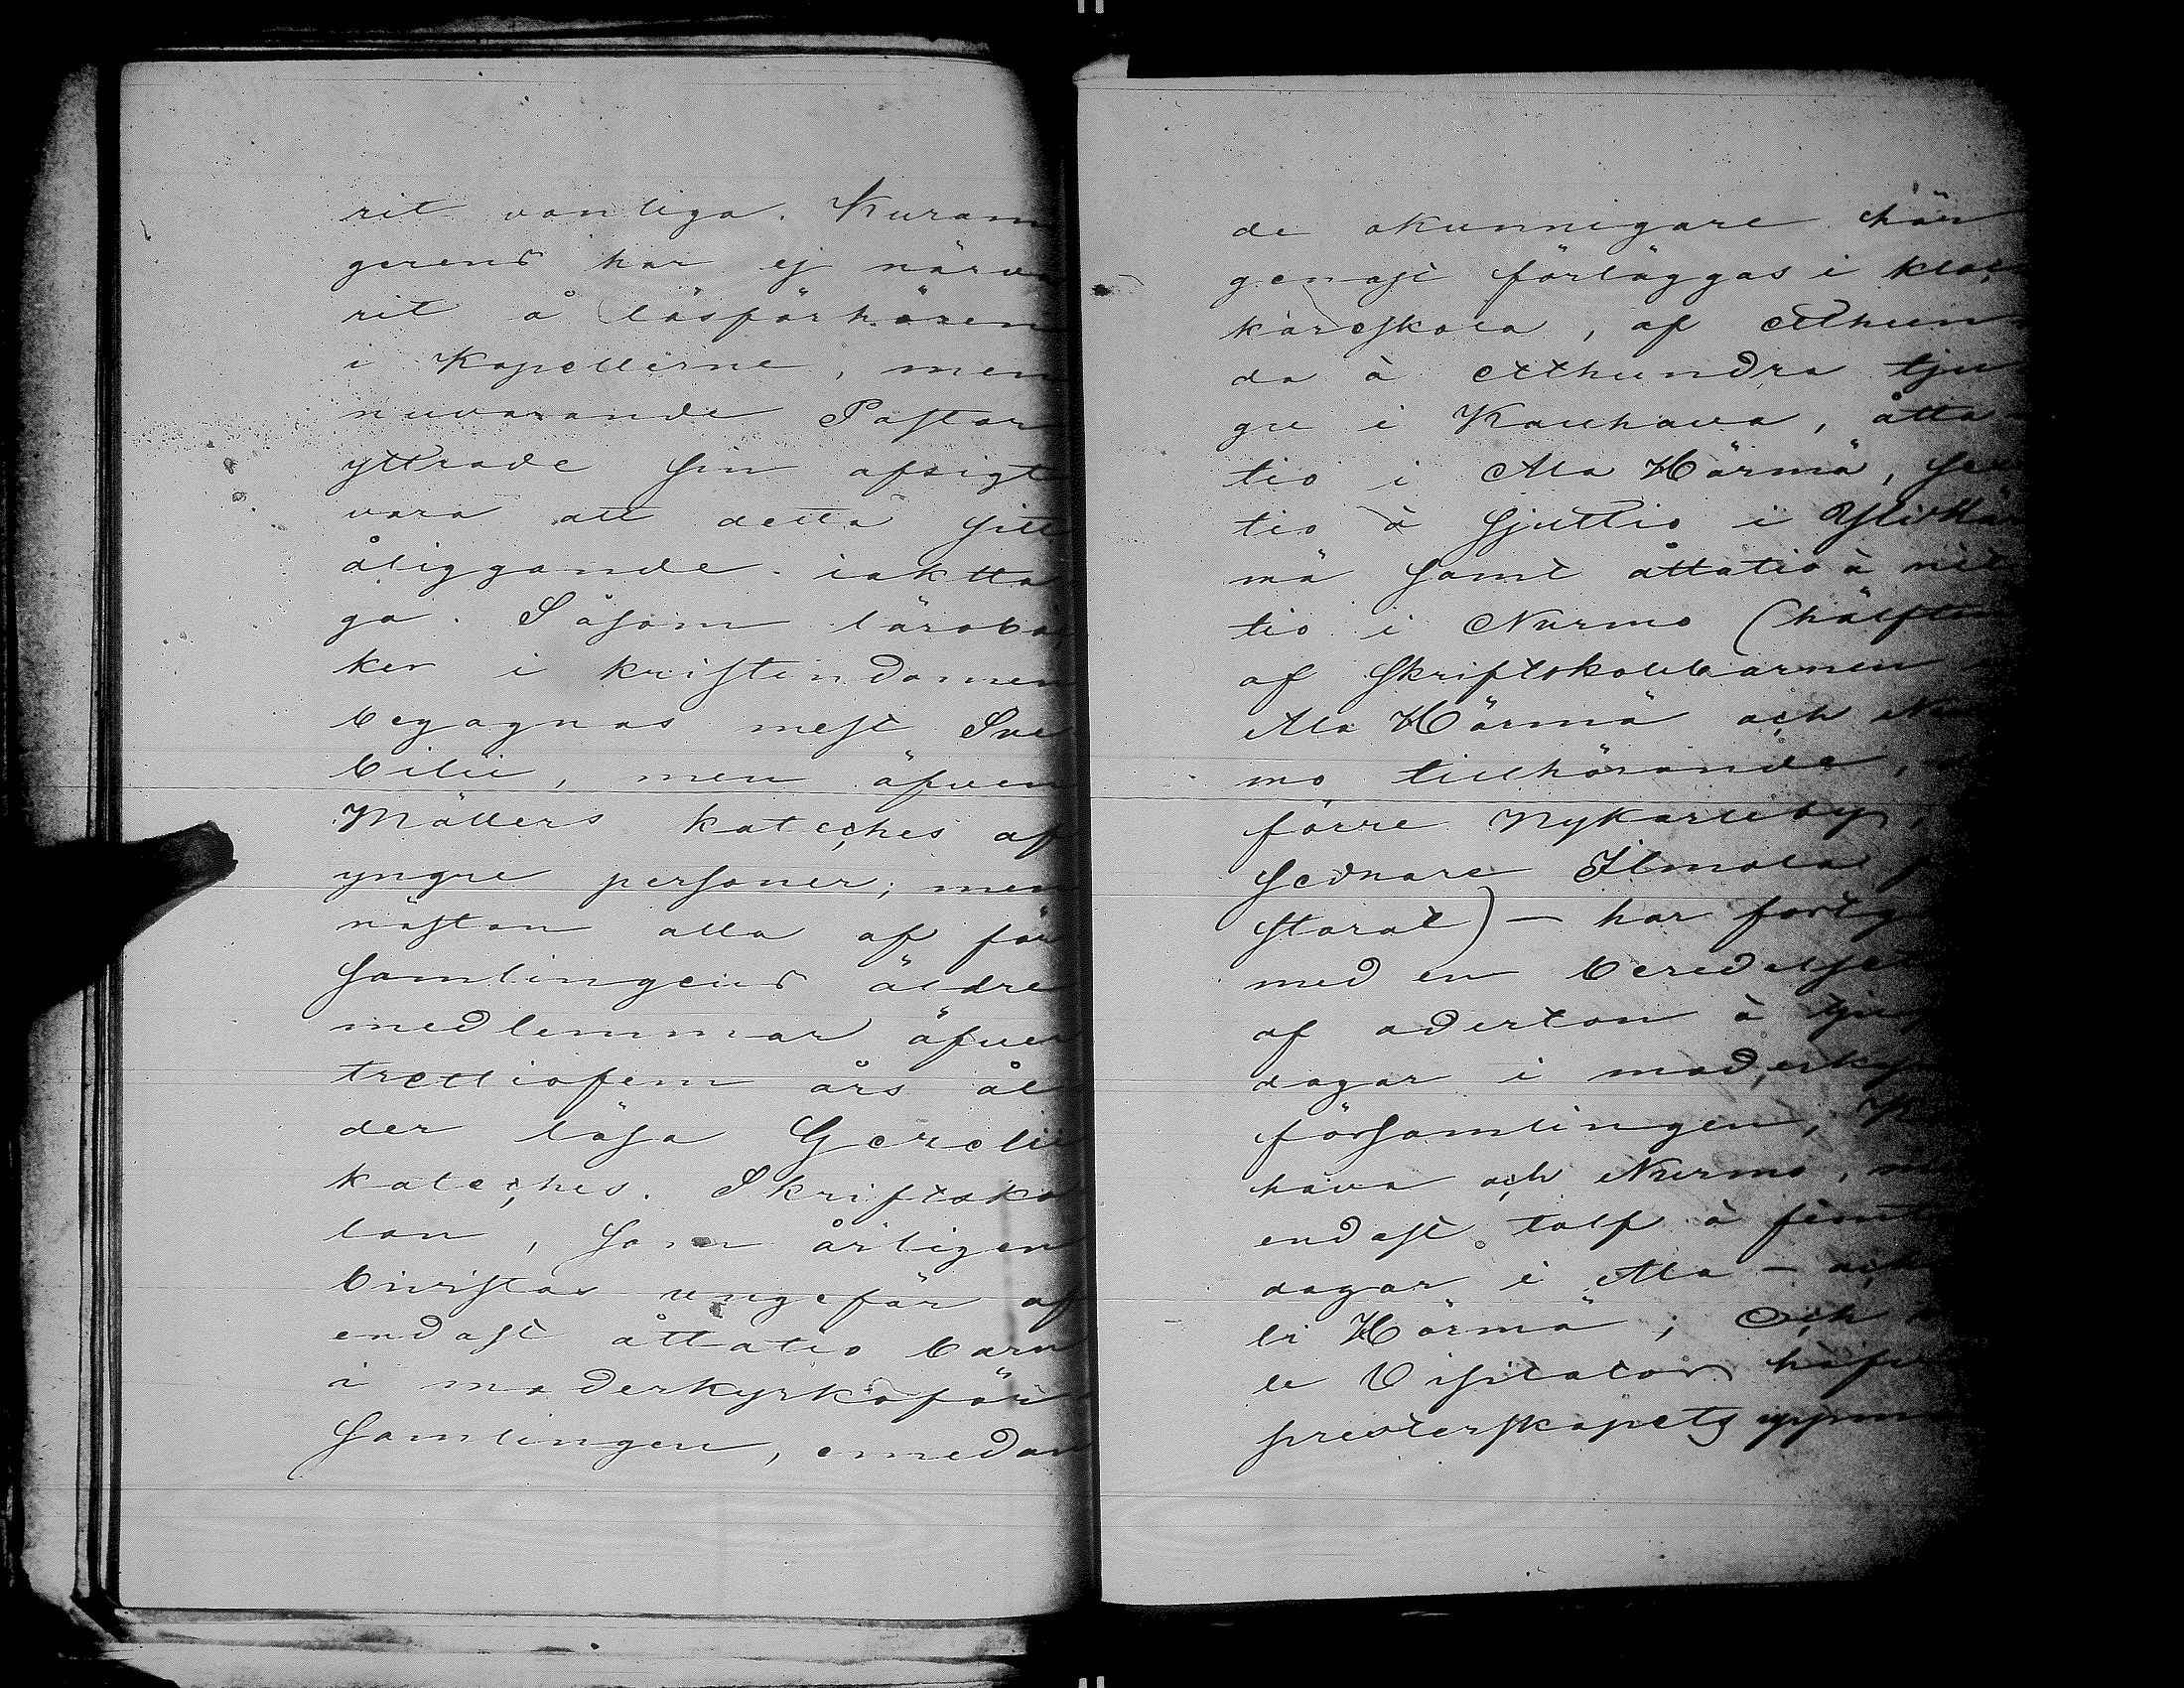 rit vanliga. Kuram
gerens har ej närva
rit å läsförhören
i Kapellerne, men
nuvarande Pastor
yttrade sin afsigt
vara att detta sitt
åliggande iaktta
ga. Såsom lärobö
ker i kristendomen
begagnas mest Sve
bilii, men äfven
Möllers kateches af
yngre personer; men
nästan alla af för
samlingens äldre
medlemmar öfver
trettiofem års ål
der läsa Gezelii
kateches. Skriftsko
lan, som årligen
bivistas ungefär af
endast åttatio barn
i moderkyrkoför
samlingen, emedan
de okunnigare här
genast förläggas i kloc
kareskola, af etthun
da à etthundra tju
gu i Kauhava, åtta
tio i Ala Härmä, sex
tio à sjuttio i Ylihär
mä samt åttatio à nit
tio i Nurmo (hälften
af Skriftskolbarnen
Ala Härmä och Nur
mo tillhörande,
förre Nykarleby,
sednare Ilmola
storat) — har fortg
med en beredelse
af aderton à tju
dagar i moderky
församlingen,
hava och Nurmo,
endast tolf à femt
dagar i Ala - och
li Härmä; Och
le Visitator
presterskapets uppm